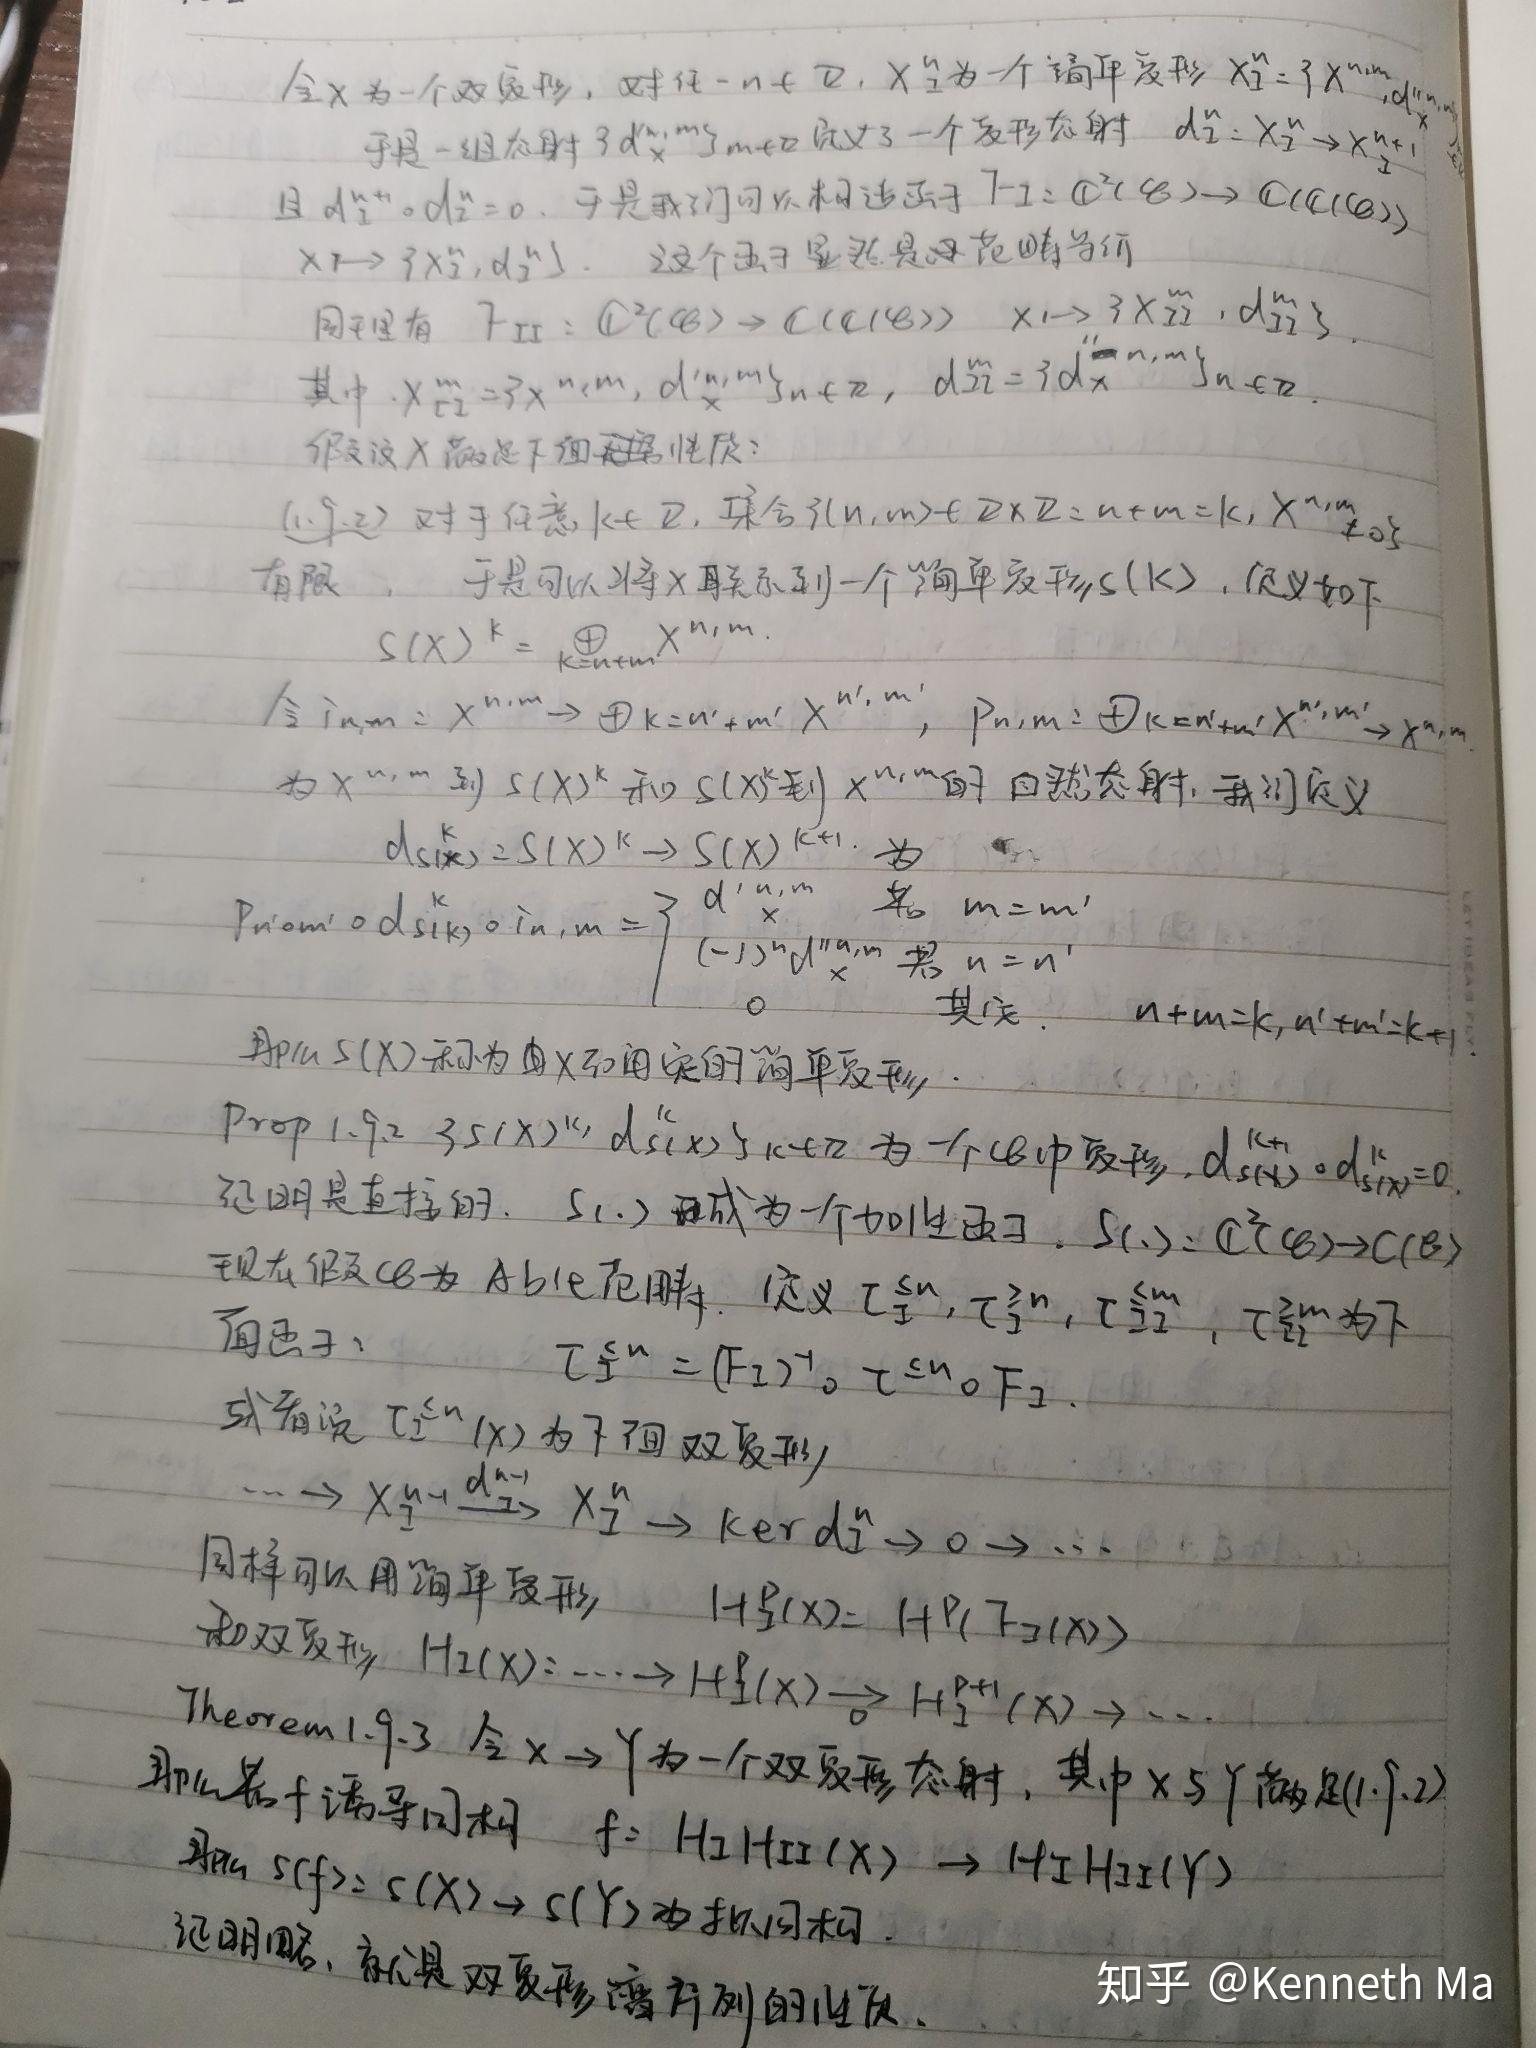 令X为一个双复形，对任一n∈Z，X_I^n为一个简单复形 X_I^n={X^{n,m}, d''_X^{n,m}}
于是一组态射{d'_X^{n,m}}_{m∈Z}定义了一个复形态射 d_I^n: X_I^n→X_I^{n+1}
且 d_I^{n+1}∘d_I^n=0. 于是我们可以构造函子 F_I: C²(𝒞)→C(C(𝒞))
X↦{X_I^n, d_I^n}. 这个函子显然是范畴等价
同理有 F_II: C²(𝒞)→C(C(𝒞)) X↦{X_II^m, d_II^m}.
其中 X_II^m={X^{n,m}, d'_X^{n,m}}_{n∈Z}, d_II^m={d''_X^{n,m}}_{n∈Z}.
假设X满足下面性质：
(1.9.2) 对于任意 k∈Z, 集合{(n,m)∈Z×Z: n+m=k, X^{n,m}≠0}
有限, 于是可以将X联系到一个简单复形s(X), 定义如下
S(X)^k = ⊕_{k=n+m} X^{n,m}.
令 i_{n,m}: X^{n,m}→⊕_{k=n'+m'} X^{n',m'}, P_{n,m}: ⊕_{k=n'+m'} X^{n',m'}→X^{n,m}
为X^{n,m}到S(X)^k和S(X)^k到X^{n,m}的自然态射，我们定义
d_{S(X)}^k: S(X)^k→S(X)^{k+1}. 为
P_{n',m'}∘d_{S(X)}^k∘i_{n,m} = { d'_X^{n,m} 若 m=m'
(-1)^n d''_X^{n,m} 若 n=n'
0 其它. n+m=k, n'+m'=k+1
那么S(X)称为由X确定的简单复形.
Prop 1.9.2 {S(X)^k, d_{S(X)}^k}_{k∈Z} 为一个𝒞中复形, d_{S(X)}^{k+1}∘d_{S(X)}^k=0.
证明是直接的. S(.)成为一个加性函子. S(.): C²(𝒞)→C(𝒞)
现在假设𝒞为Able范畴. 定义 τ_I^{≤n}, τ_I^{≥n}, τ_II^{≤m}, τ_II^{≥m}为下
面函子： τ_I^{≤n} = (F_I)^{-1}∘τ^{≤n}∘F_I.
或者说 τ_I^{≤n}(X)为下面双复形
…→X_I^{n-1} →^{d_I^{n-1}} X_I^n→ker d_I^n→0→…
同样可以用简单复形 H_I^p(X)=H^p(F_I(X))
和双复形 H_I(X): …→H_I^p(X)→_0 H_I^{p+1}(X)→…
Theorem 1.9.3 令X→Y为一个双复形态射，其中X与Y满足(1.9.2)
那么若f诱导同构 f: H_I H_II(X)→H_I H_II(Y)
那么 s(f): s(X)→s(Y)为拟同构.
证明略，就是双复形谱序列的性质.
知乎 @Kenneth Ma